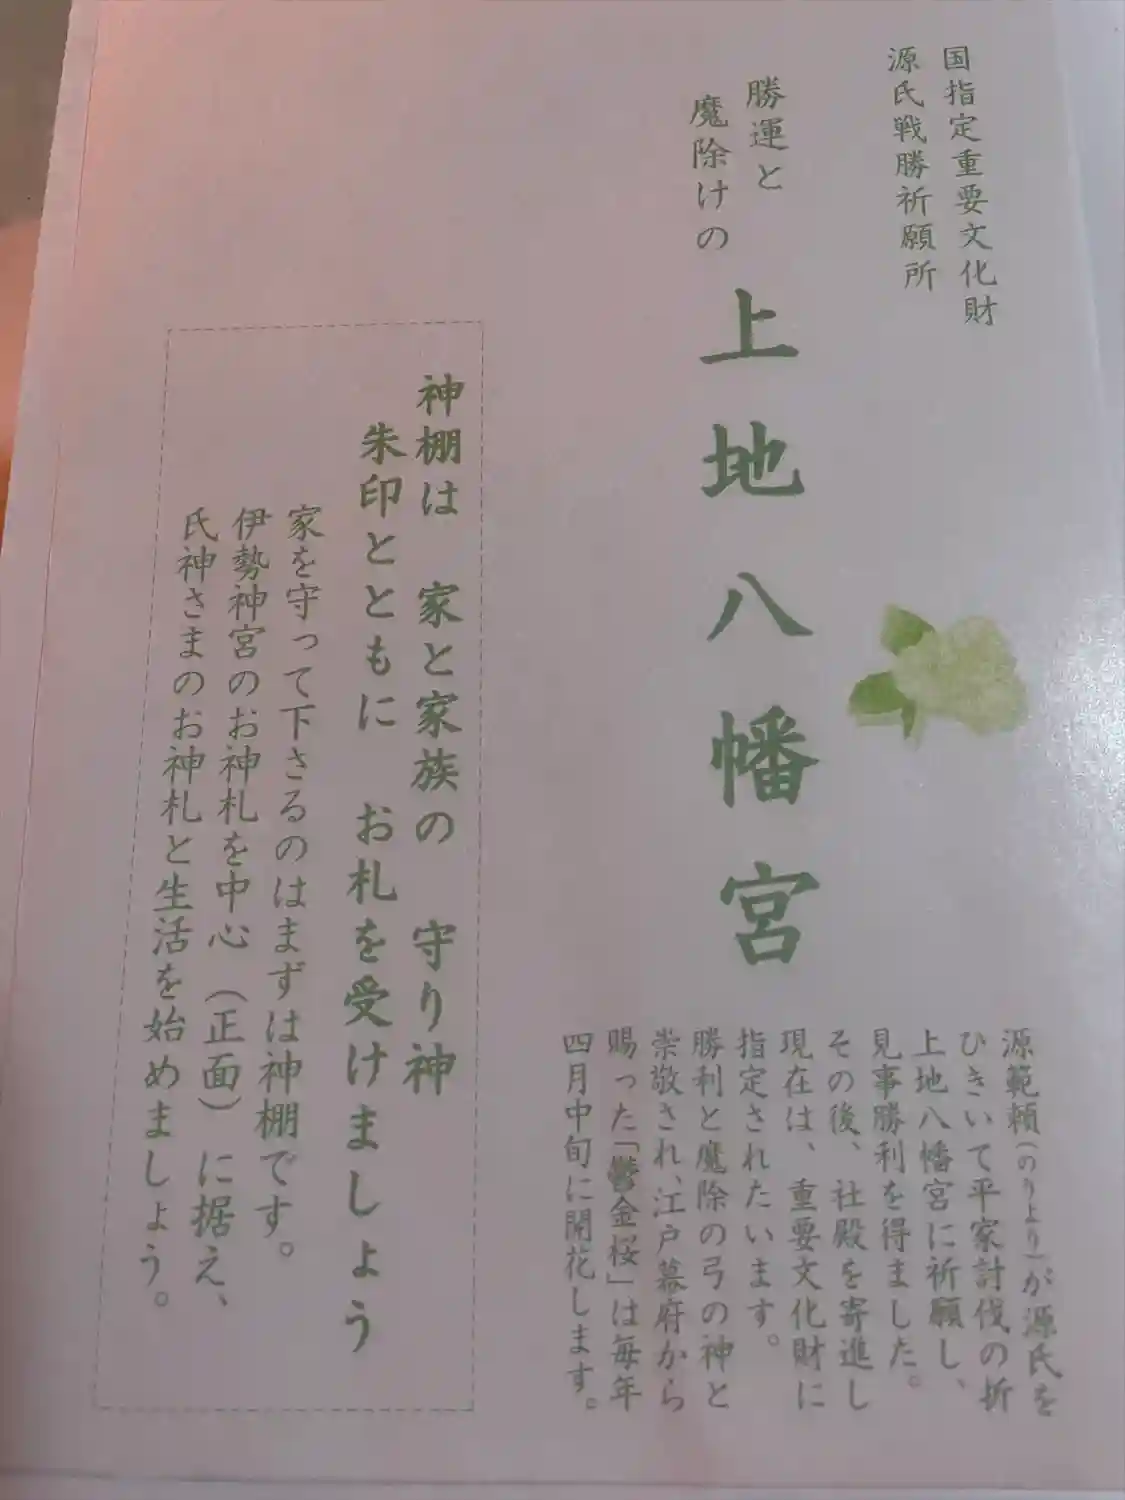 国指定重要文化財
源氏戦勝祈願所
勝運と
魔除けの
上地八幡宮
源範頼(のりより)が源氏を
ひきいて平家討伐の折
上地八幡宮に祈願し、
見事勝利を得ました。
その後、社殿を寄進し
現在は、重要文化財に
指定されたいます。
勝利と魔除の弓の神と
崇敬され、江戸幕府から
賜った「鬱金桜」は毎年
四月中旬に開花します。
神棚は 家と家族の 守り神
朱印とともに お札を受けましょう
家を守って下さるのはまずは神棚です。
伊勢神宮のお神札を中心(正面)に据え、
氏神さまのお神札と生活を始めましょう。